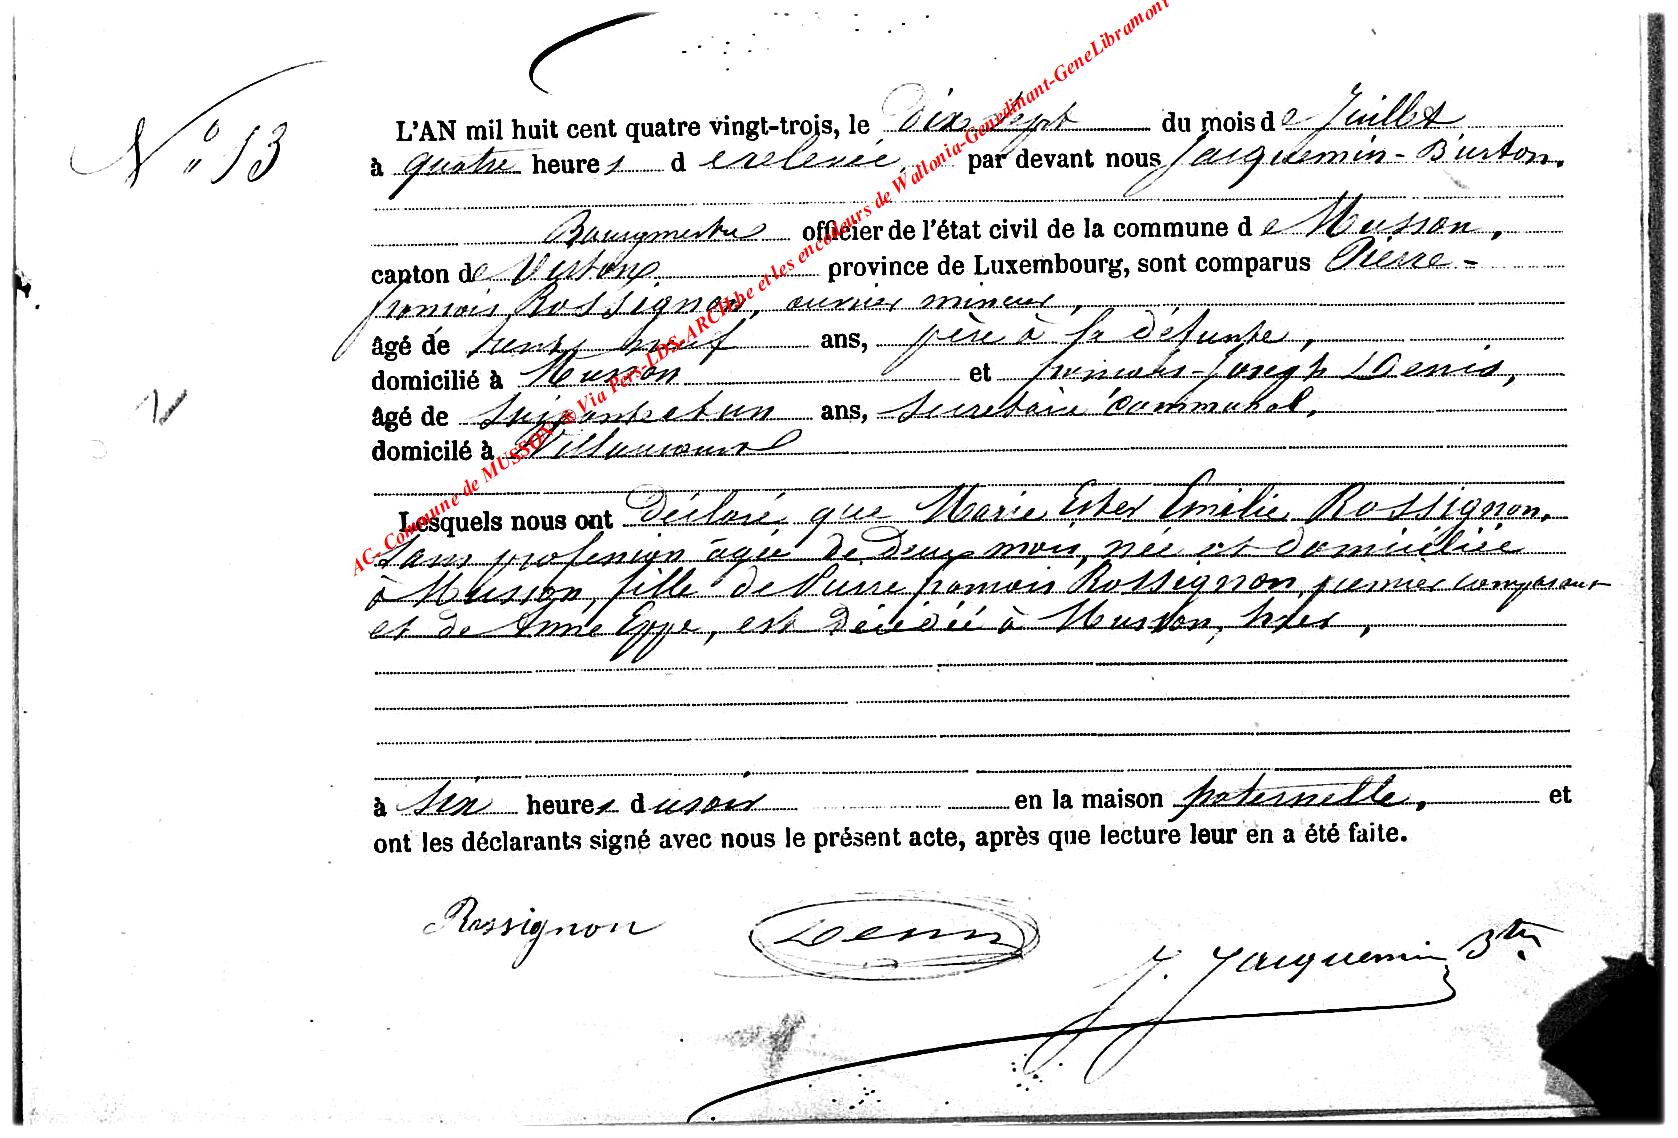 N° 13
L'AN mil huit cent quatre vingt-trois, le Dix sept du mois de Juillet
à quatre heures de relevée, par devant nous Jacquemin-Burton,
Bourgmestre officier de l'état civil de la commune de Musson,
canton de Virton province de Luxembourg, sont comparus Pierre-
françois Rossignon, ouvrier mineur,
âgé de trente neuf ans, père à la défunte,
domicilié à Musson et françois-Joseph Denis,
âgé de soixante et un ans, secrétaire communal,
domicilé à Villancourt
Lesquels nous ont déclaré que Marie Ester Emélie Rossignon,
sans profession âgée de deux mois, née et domiciliée
à Musson, fille de Pierre françois Rossignon, premier comparant
et de Anne Eppe, est décédée à Musson, hier,
à six heures du soir en la maison paternelle, et
ont les déclarants signé avec nous le présent acte, après que lecture leur en a été faite.
Rossignon Denis J. Jacquemin Btn
AC- Commune de MUSSON Via Pers-LDS-ARCH.be et les encodeurs de Wallonia-Genedinant-GeneLibramont